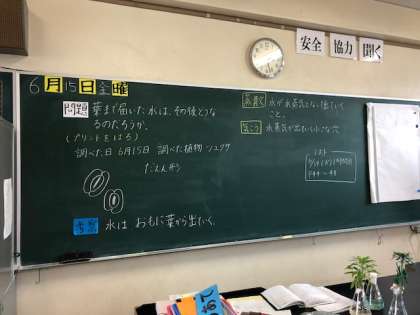 安全 協力 聞く
6月15日金曜
問題 葉まで届いた水は、その後どうな
るのだろうか。
(プリントをはる)
調べた日 6月15日 調べた植物 ツユクサ
考察 水は おもに葉から出ていく。
蒸散 水が水蒸気となって出ていく
こと。
気こう 水蒸気が出ていく小さな穴
テスト